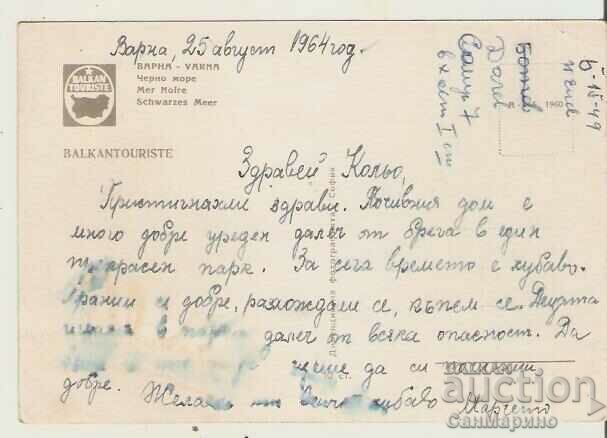 Варна, 25 август 1964 год.
BALKAN
TOURISTE
ВАРНА - VARNA
Черно море
Mer Noire
Schwarzes Meer
BALKANTOURISTE
1960
Б-15-49
Здравей Кольо,
Пристигнахме здрави. Почивния дом е
много добре уреден далеч от брега в един
прекрасен парк. За сега времето е хубаво.
Храним се добре, разхождаме се, къпем се. Децата
в далеч от всяка опасност. Да
да си
добре. Желая ти всичко хубаво Марчето
Държавна фотография София
auction
СанМарино